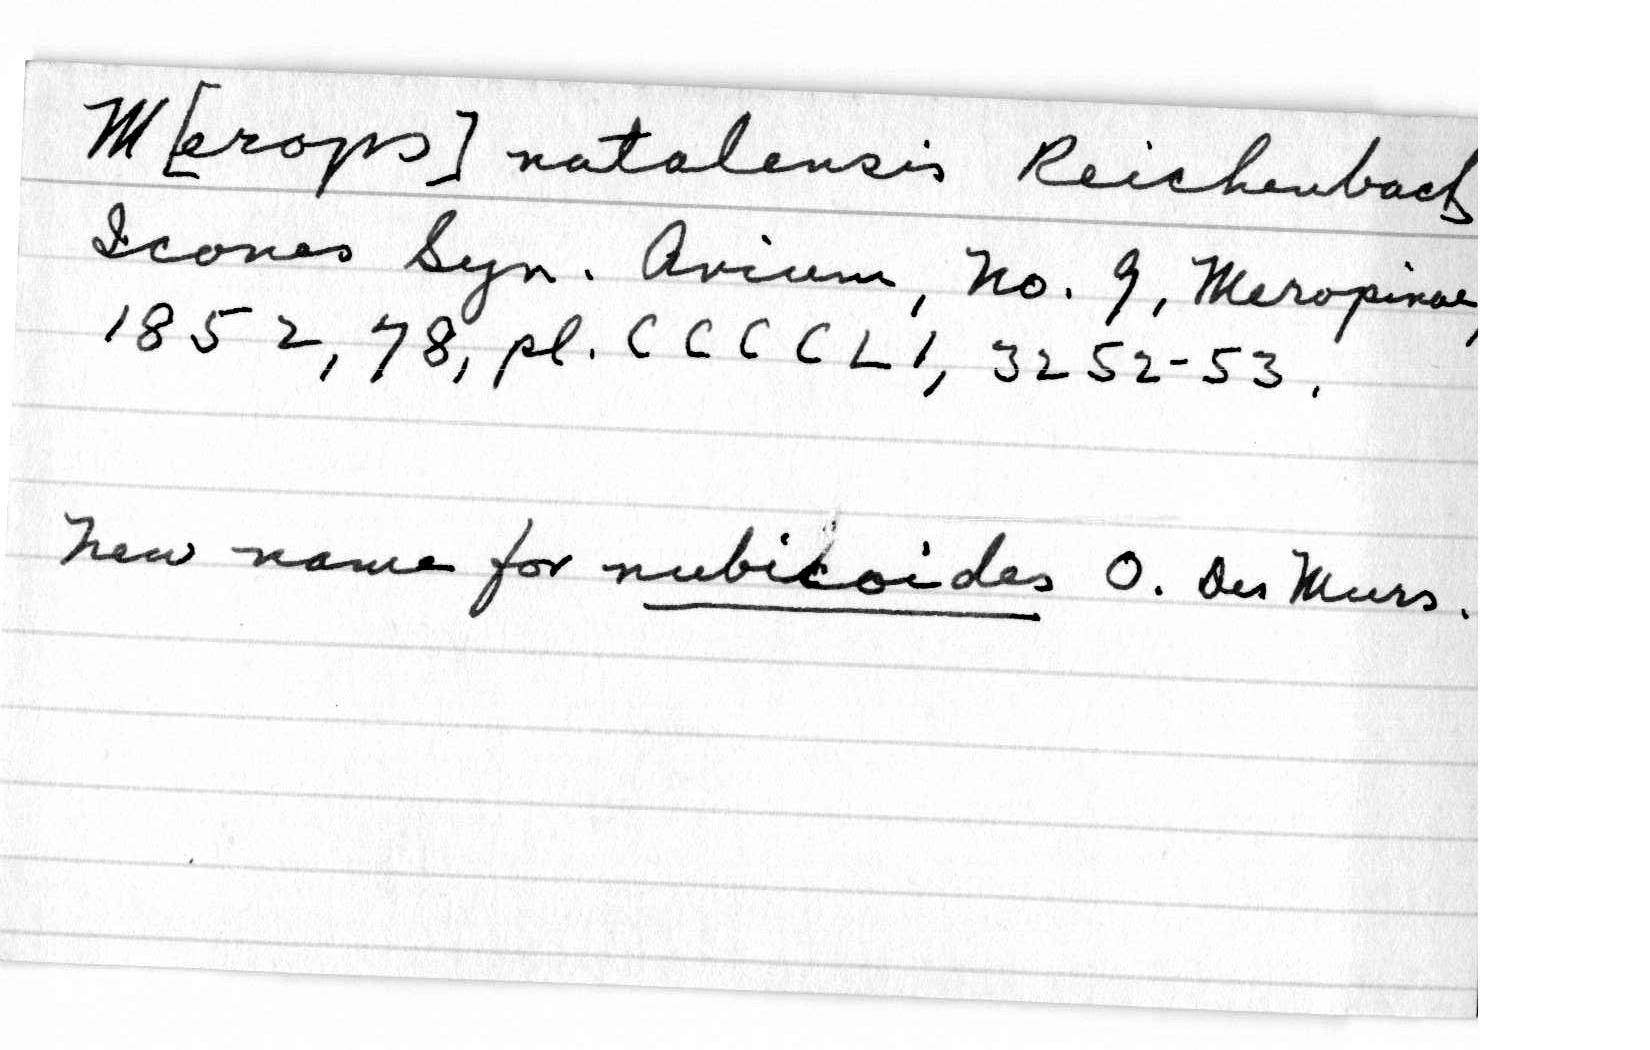 M[erops] natalensis Reichenbach
Icones Syn. Avium, No. 9, Meropinae,
1852, 78, pl. CCCCLI, 3252-53.
New name for nubicoides O. Des Murs.